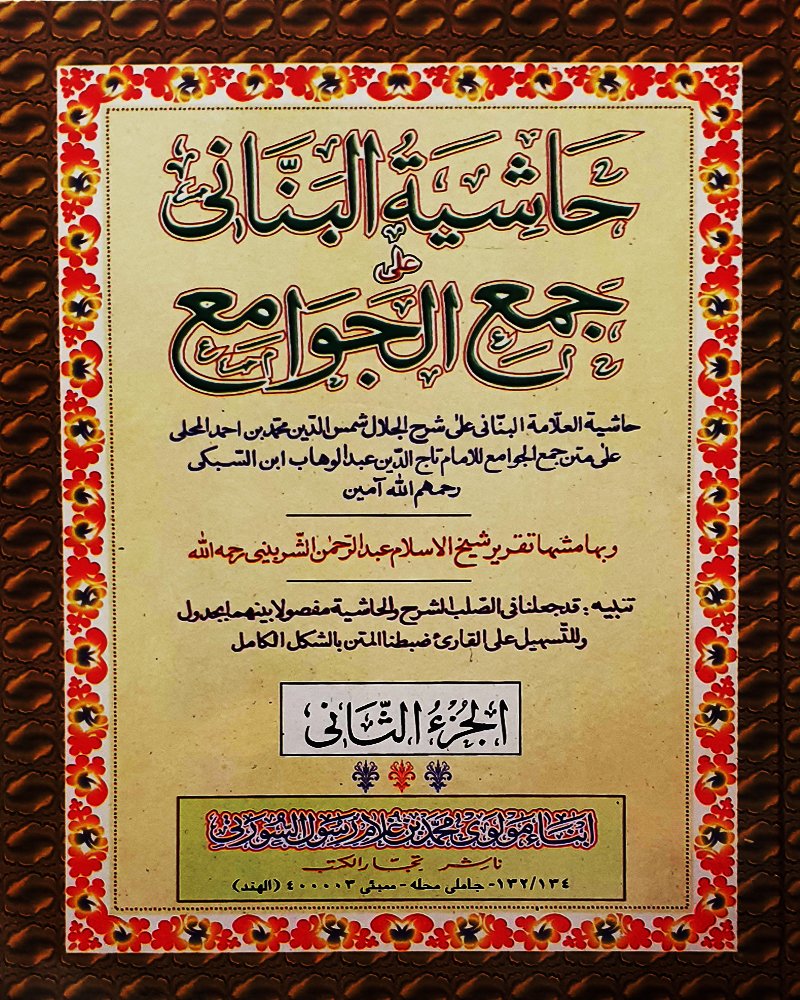 حَاشِيَةُ البَنَّانى
على
جَمعِ الجَوَامِع
حاشية العلّامة البنّانى على شرح الجلال شمس الدّين محمّد بن احمد المحلى
على متن جمع الجوامع للامام تاج الدّين عبد الوهاب ابن السّبكى
رحمهم الله آمين
وبهامشها تقرير شيخ الاسلام عبد الرّحمٰن الشّربينى رحمه الله
تنبيه: قد جعلنا فى الصّلب الشرح والحاشية مفصولا بينهما بجدول
وللتّسهيل على القارئ ضبطنا المتن بالشكل الكامل
الجُزءُ الثَّانى
ابناء مولوى محمد بن غلام رسول السورتى
ناشر تجّار الكتب
١٣٢/١٣٤- جاملى محله - ممبئى ٤٠٠٠٠٣ (الهند)